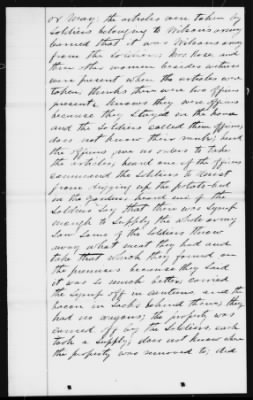 or Wray; the articles were taken by
soldiers belonging to Wilsons army
learned that it was Wilsons army
from the soldiers; Mrs Rose and
three other women besides witness
were present when the articles were
taken, thinks there were two officers
present; knows they were officers
because they stayed in the house
and the soldiers called them officers,
does not know their rank; heard
the officers give no orders to take
the articles; heard one of the officers
command the soldiers to desist
from digging up the potato-bed
in the garden; heard one of the
soldiers say that there was syrup
enough to supply the whole army
saw some of the soldiers throw
away what meat they had and
take that which they found on
the premises because they said
it was so much better; carried
the syrup off in canteens and the
bacon in sacks behind them; they
had no wagons; the property was
carried off by the soldiers, each
took a supply; does not know where
the property was removed to; did